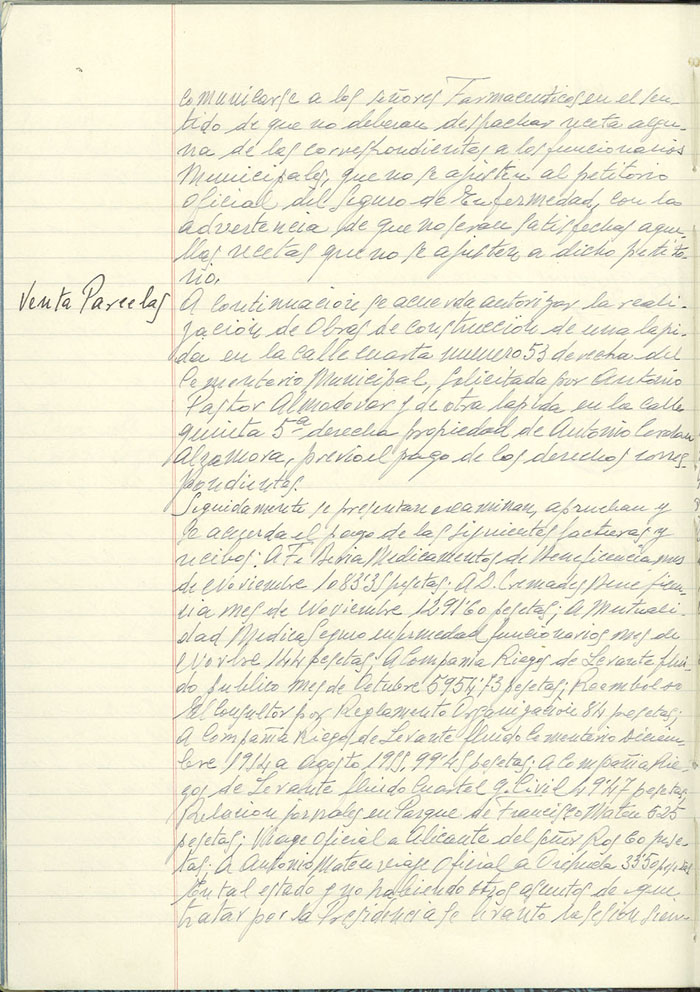 comunicarse a los señores Farmaceuticos en el sen-
tido de que no deberan despachar receta algu-
na de las correspondientes a los funcionarios
Municipales, que no se ajusten al petitorio
Oficial del Seguro de Enfermedad, con la
advertencia de que no seran satisfechas aque-
llas recetas que no se ajusten a dicho petito-
rio.
Venta Parcelas
A continuacion se acuerda autorizar la reali-
zacion de Obras de construccion de una lapi-
da en la calle cuarta numero 53 derecha del
Cementerio Municipal, solicitada por Antonio
Pastor Almodovar y de otra lapida en la calle
quinta 5ª derecha propiedad de Antonio
Alzamora, previo el pago de los derechos corres
pondientes.
Seguidamente se presentan examinan, aprueban y
se acuerda el pago de las siguientes facturas y
recibos: A Fº Medicamentos de Beneficencia mes
de Noviembre 1083'35 pesetas; A D. Cremades Benefiçen-
cia mes de Noviembre 1291'60 pesetas; A Mutuali-
dad Medica Seguro enfermedad funcionarios mes de
Novbre 144 pesetas; A Compañia Riegos de Levante flui-
do publico mes de Octubre 5954'73 pesetas; Reembolso
El Consultor por Reglamento Organizacion 84 pesetas;
A Compañia Riegos de Levante fluido Cementerio Diciem-
bre 1954 a Agosto 1955, 99'45 pesetas; A Compañia Rie-
gos de Levante fluido Cuartel G. Civil 49'47 pesetas,
Relacion jornales en Parque de Francisco Maten 525
pesetas; Viaje Oficial a Alicante del señor Ros 60 pese-
tas; A Antonio Maten viaje Oficial a Orihuela 335 pesetas
En tal estado y no habiendo otros asuntos de que
tratar por la Presidencia se levanto la sesion sien-